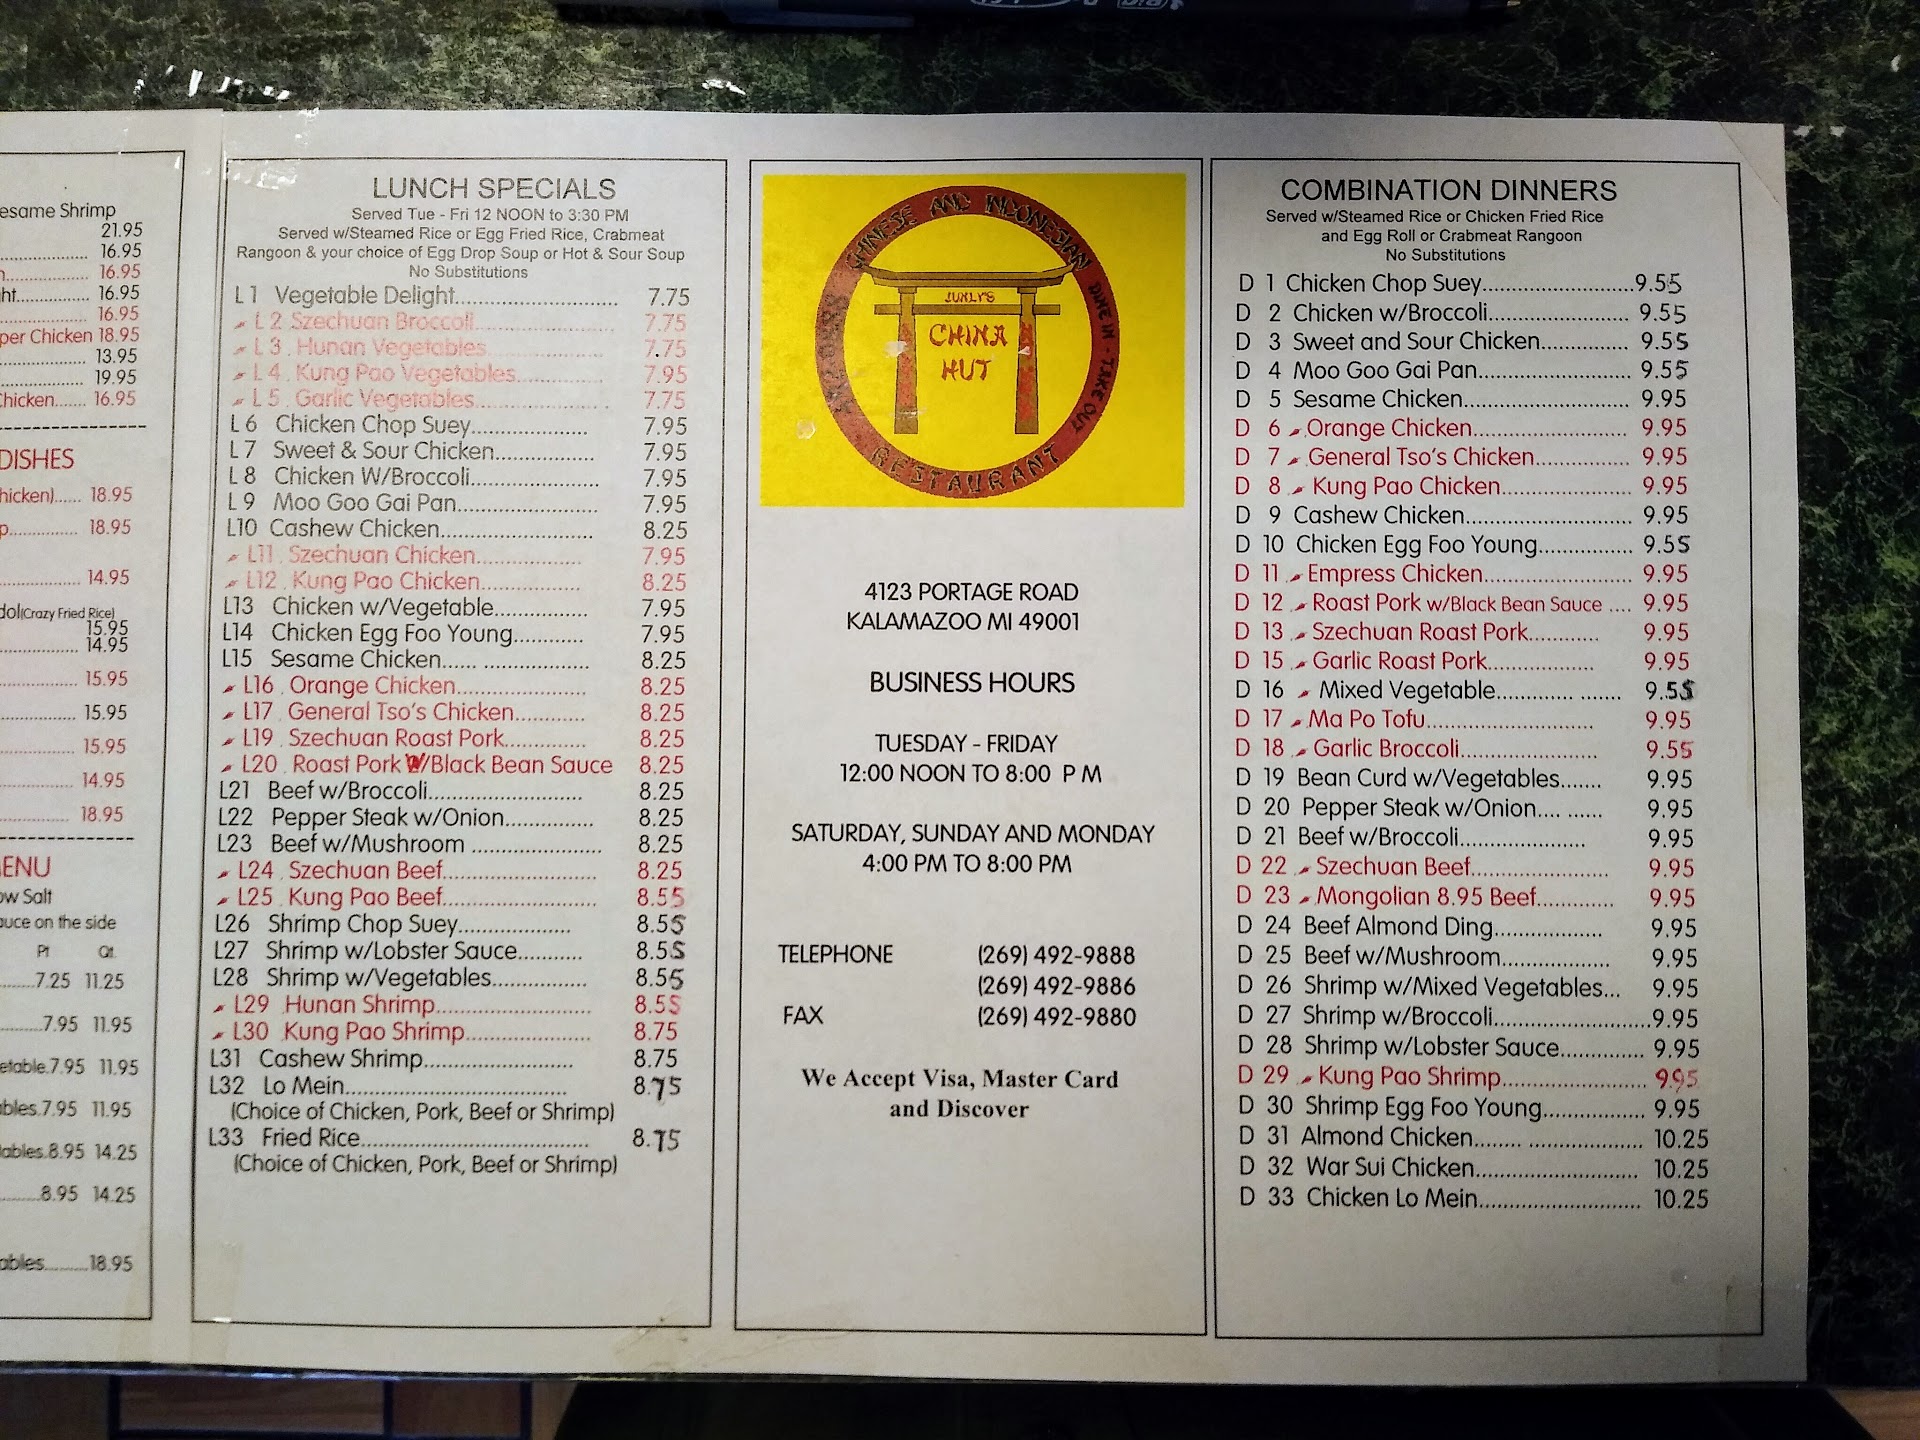 esame Shrimp
21.95
16.95
16.95
ht 16.95
16.95
per Chicken 18.95
13.95
19.95
Chicken....... 16.95
DISHES
hicken)...... 18.95
p................ 18.95
14.95
dol(Crazy Fried Rice)
15.95
14.95
15.95
15.95
15.95
14.95
18.95
ENU
ow Salt
auce on the side
Pt Qt.
7.25 11.25
7.95 11.95
etable.7.95 11.95
bles.7.95 11.95
ables.8.95 14.25
8.95 14.25
ables..........18.95
LUNCH SPECIALS
Served Tue - Fri 12 NOON to 3:30 PM
Served w/Steamed Rice or Egg Fried Rice, Crabmeat
Rangoon & your choice of Egg Drop Soup or Hot & Sour Soup
No Substitutions
L 1 Vegetable Delight 7.75
L 2 Szechuan Broccoli 7.75
L 3 Hunan Vegetables 7.75
L 4 Kung Pao Vegetables 7.95
L 5 Garlic Vegetables 7.75
L 6 Chicken Chop Suey 7.95
L 7 Sweet & Sour Chicken 7.95
L 8 Chicken W/Broccoli 7.95
L 9 Moo Goo Gai Pan 7.95
L10 Cashew Chicken 8.25
L11 Szechuan Chicken 7.95
L12 Kung Pao Chicken 8.25
L13 Chicken w/Vegetable 7.95
L14 Chicken Egg Foo Young 7.95
L15 Sesame Chicken 8.25
L16 Orange Chicken 8.25
L17 General Tso's Chicken 8.25
L19 Szechuan Roast Pork 8.25
L20 Roast Pork W/Black Bean Sauce 8.25
L21 Beef w/Broccoli 8.25
L22 Pepper Steak w/Onion 8.25
L23 Beef w/Mushroom 8.25
L24 Szechuan Beef 8.25
L25 Kung Pao Beef 8.55
L26 Shrimp Chop Suey 8.55
L27 Shrimp w/Lobster Sauce 8.55
L28 Shrimp w/Vegetables 8.55
L29 Hunan Shrimp 8.55
L30 Kung Pao Shrimp 8.75
L31 Cashew Shrimp 8.75
L32 Lo Mein 8.75
(Choice of Chicken, Pork, Beef or Shrimp)
L33 Fried Rice 8.75
(Choice of Chicken, Pork, Beef or Shrimp)
CHINESE AND INDONESIAN
DINE IN - TAKE OUT
RESTAURANT
JUNLY'S
CHINA
HUT
4123 PORTAGE ROAD
KALAMAZOO MI 49001
BUSINESS HOURS
TUESDAY - FRIDAY
12:00 NOON TO 8:00 P M
SATURDAY, SUNDAY AND MONDAY
4:00 PM TO 8:00 PM
TELEPHONE (269) 492-9888
(269) 492-9886
FAX (269) 492-9880
We Accept Visa, Master Card
and Discover
COMBINATION DINNERS
Served w/Steamed Rice or Chicken Fried Rice
and Egg Roll or Crabmeat Rangoon
No Substitutions
D 1 Chicken Chop Suey 9.55
D 2 Chicken w/Broccoli 9.55
D 3 Sweet and Sour Chicken 9.55
D 4 Moo Goo Gai Pan 9.55
D 5 Sesame Chicken 9.95
D 6 Orange Chicken 9.95
D 7 General Tso's Chicken 9.95
D 8 Kung Pao Chicken 9.95
D 9 Cashew Chicken 9.95
D 10 Chicken Egg Foo Young 9.55
D 11 Empress Chicken 9.95
D 12 Roast Pork w/Black Bean Sauce 9.95
D 13 Szechuan Roast Pork 9.95
D 15 Garlic Roast Pork 9.95
D 16 Mixed Vegetable 9.55
D 17 Ma Po Tofu 9.95
D 18 Garlic Broccoli 9.55
D 19 Bean Curd w/Vegetables 9.95
D 20 Pepper Steak w/Onion 9.95
D 21 Beef w/Broccoli 9.95
D 22 Szechuan Beef 9.95
D 23 Mongolian 8.95 Beef 9.95
D 24 Beef Almond Ding 9.95
D 25 Beef w/Mushroom 9.95
D 26 Shrimp w/Mixed Vegetables 9.95
D 27 Shrimp w/Broccoli 9.95
D 28 Shrimp w/Lobster Sauce 9.95
D 29 Kung Pao Shrimp 9.95
D 30 Shrimp Egg Foo Young 9.95
D 31 Almond Chicken 10.25
D 32 War Sui Chicken 10.25
D 33 Chicken Lo Mein 10.25